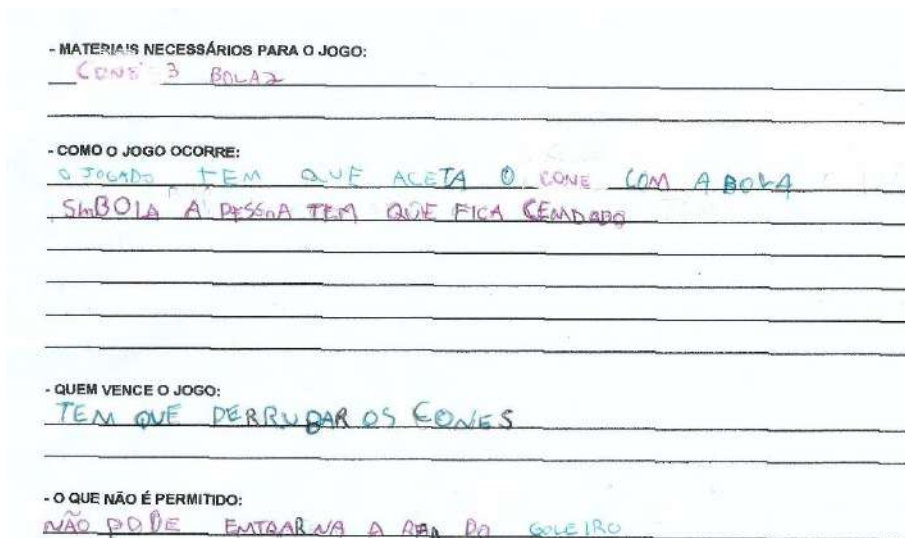 - MATERIAIS NECESSÁRIOS PARA O JOGO:
CONE 3 BOLAZ
- COMO O JOGO OCORRE:
O JOGADO TEM QUE ACETA O CONE COM A BOLA
SMBOLA A PESSOA TEM QUE FICA CEMDADO
- QUEM VENCE O JOGO:
TEM QUE DERRUBAR OS CONES
- O QUE NÃO É PERMITIDO:
NÃO PODE ENTRAR NA A REA DO GOLEIRO